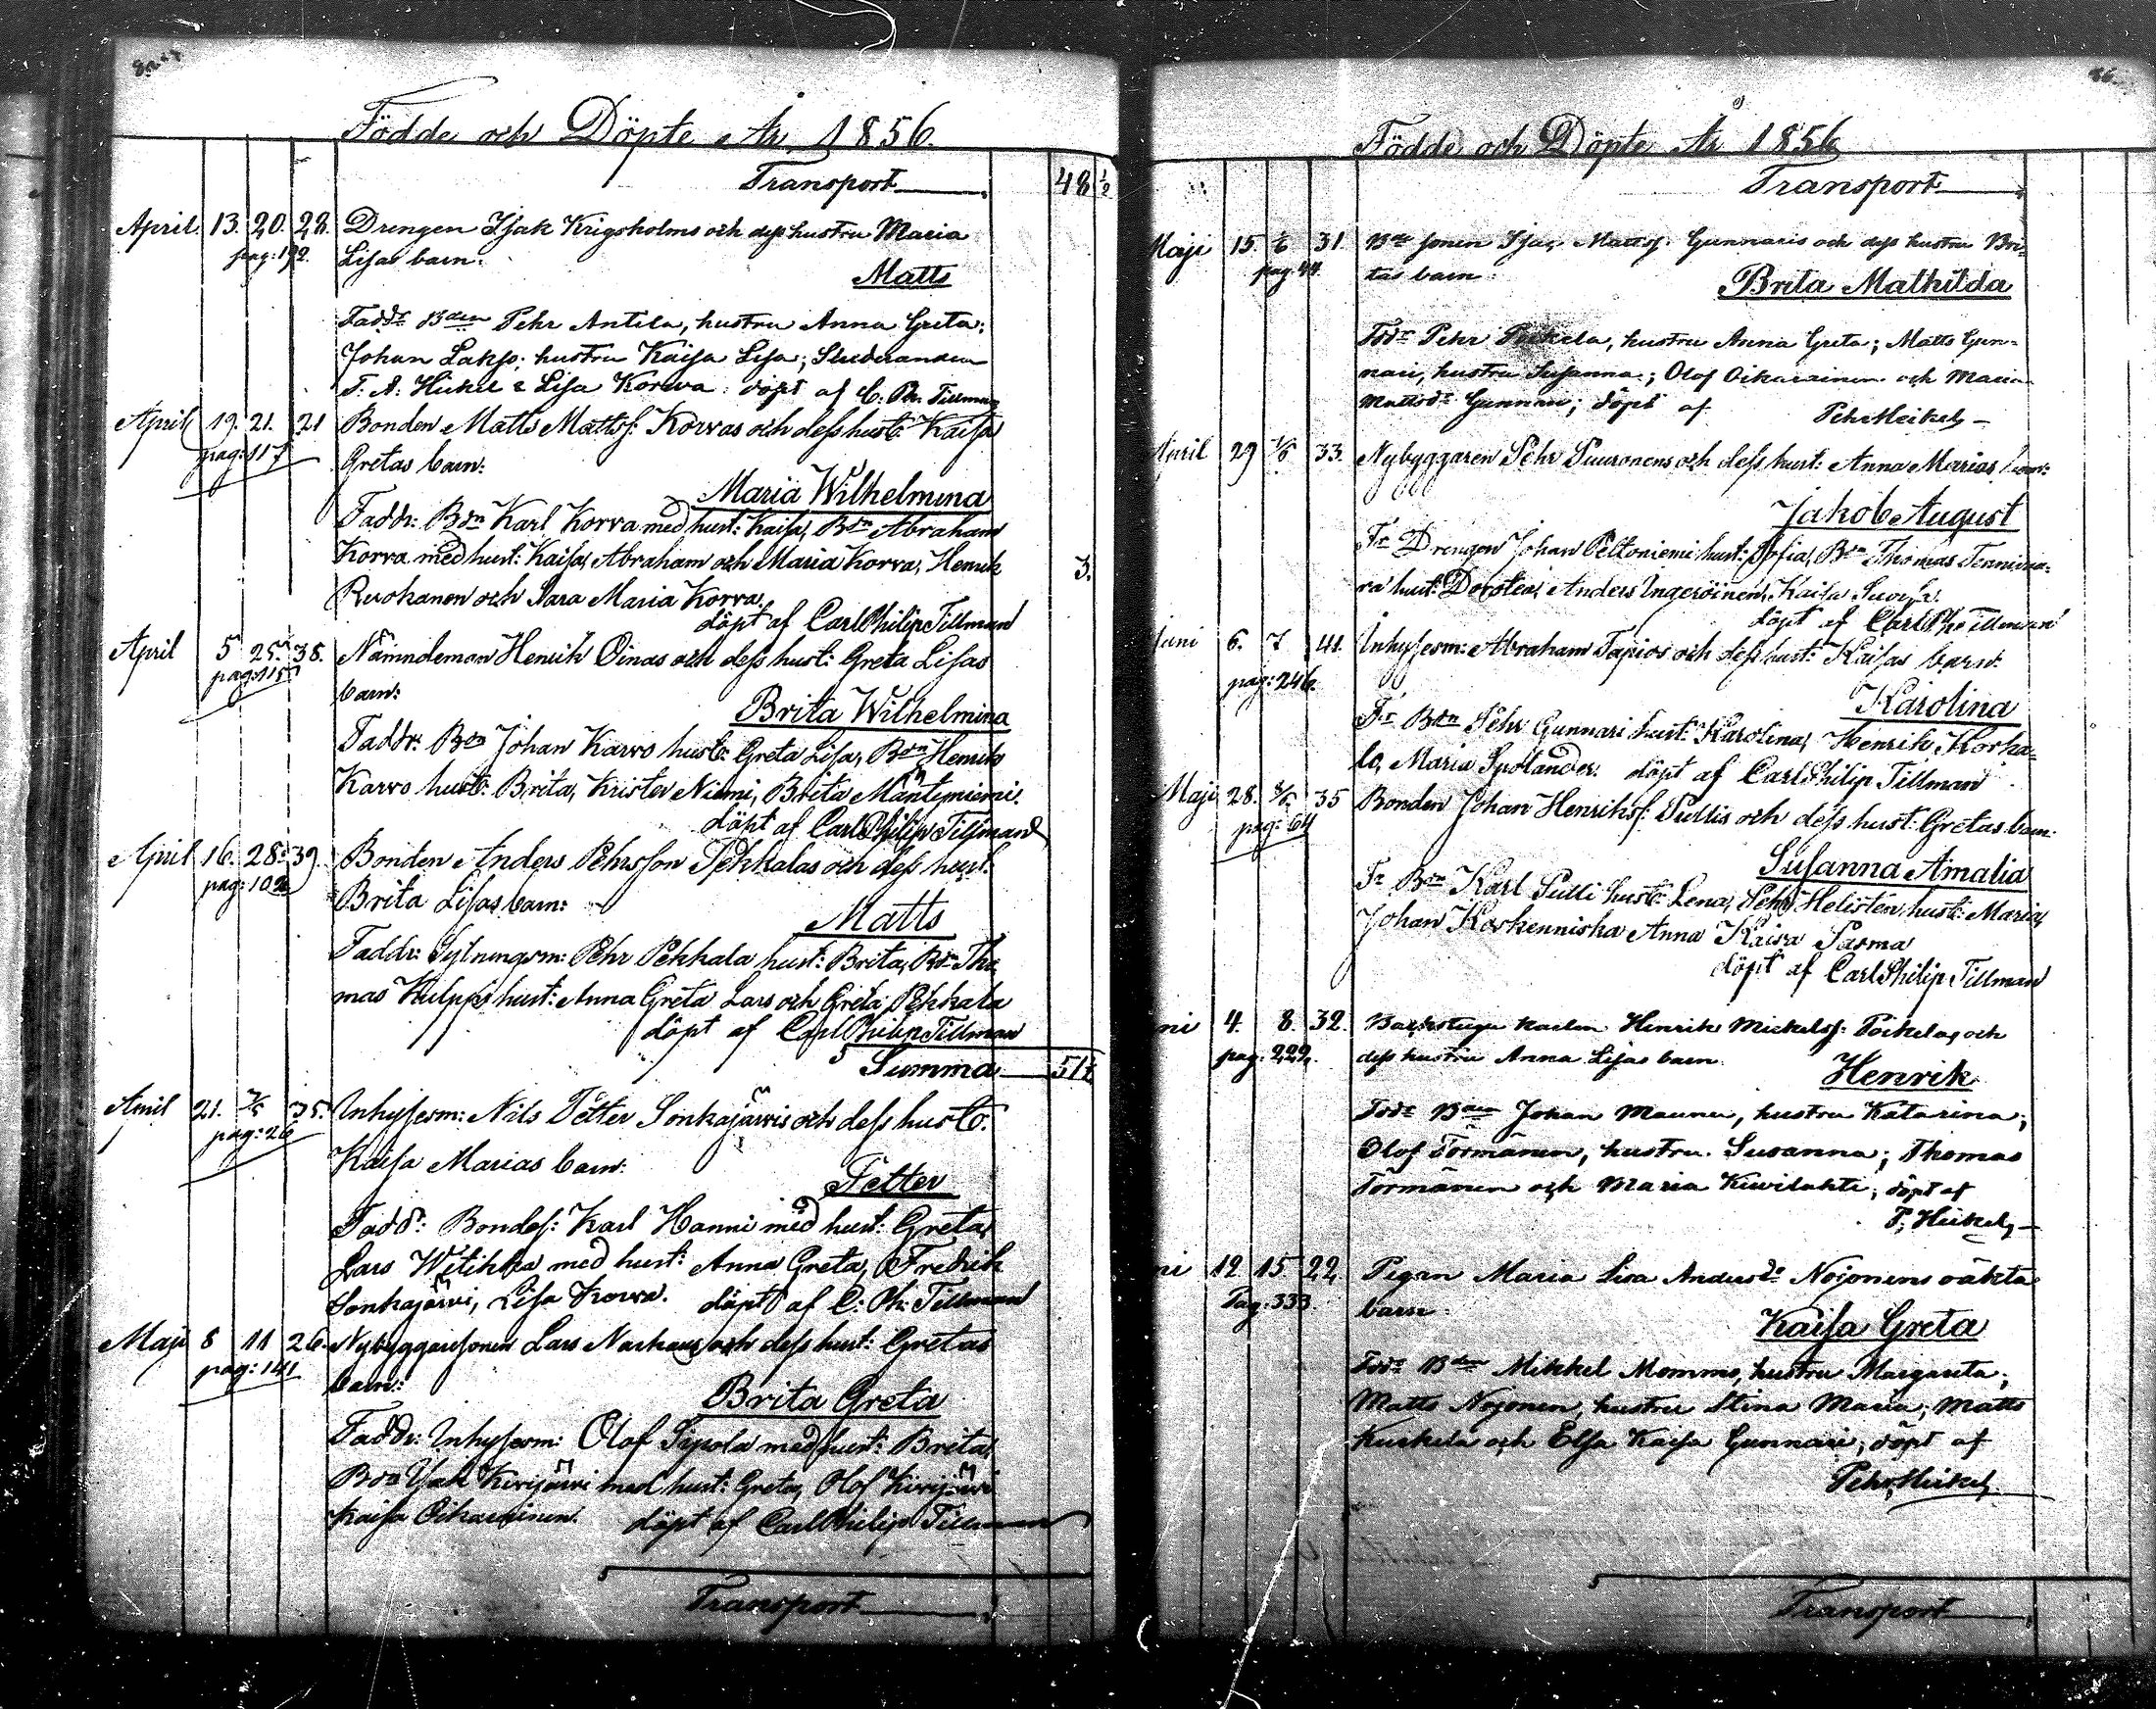 Födde och Döpte År 1856.
Transport 48 ½
April 13. 20. 28. Drengen Isak Krigsholms och dess hustru Maria
pag: 192. Lisas barn:
Matts
Faddr Bden Pehr Antila, hustru Anna Greta;
Johan Lakso; hustru Kaisa Lisa; Studeranden
F. A. Heikel & Lisa Korwa: döpt af C. Ph. Tillman
April 19. 21. 21 Bonden Matts Mattss: Korvas och dess hust: Kaisa
pag: 117 Gretas barn:
Maria Wilhelmina
Faddr: Bdn Karl Korva med hust: Kaisa, Bdn Abraham
Korva med hust: Kaisa, Abraham och Maria Korva, Henrik 3.
Ruokanen och Sara Maria Korva.
döpt af Carl Philip Tillman
April 5 25. 38. Nämndeman Henrik Oinas och dess hust: Greta Lisas
pag: 115 barn:
Brita Wilhelmina
Faddr: Bdn Johan Karvo hust: Greta Lisa, Bdn Henrik
Karvo hust: Brita, Krister Niemi, Brita Mäntyniemi.
döpt af Carl Philip Tillman
April 16. 28. 39. Bonden Anders Pehrsson Pekkalas och dess hust:
pag: 102 Brita Lisas barn:
Matts
Faddr: Sytningsm: Pehr Pekkala hust: Brita, Bdn Tho
mas Kulppi hust: Anna Greta Lars och Greta Pekkala
döpt af Carl Philip Tillman
Summa 51½
April 21. 2/5 35. Inhysesm: Nils Petter Sonkajärvis och dess hust:
pag: 26 Kaisa Marias barn:
Petter
Fadd: Bondes: Karl Hanni med hust: Greta,
Lars Wetikka med hust: Anna Greta, Fredrik
Sonkajärvi, Lisa Korva. döpt af C: Ph: Tillman
Maji 8 11 26. Nybyggaresonen Lars Narkaus och dess hust: Gretas
pag: 141 barn:
Brita Greta
Faddr: Inhysesm: Olof Sipola med hust: Brita,
Bdn Isak Kivijärvi med hust: Greta, Olof Kivijärvi
Kaisa Oikarainen. döpt af Carl Philip Tillman
Transport
Födde och Döpte År 1856
Transport
Maji 15. 1/6 31. Bde sonen Isac Mattss: Gunnaris och dess hustru Bri-
pag: 44. tas barn:
Brita Mathilda
Fddr Pehr Poikela, hustru Anna Greta; Matts Gun-
nari, hustru Susanna; Olof Oikarainen och Maria
Mattsdr Gunnari; döpt af Pehr Heikel
April 29 1/6 33. Nybyggaren Pehr Puuronens och dess hust: Anna Marias barn:
Jakob August
Fr Drengen Johan Peltoniemi hust: Sofia, Bdn Thomas Tennива-
ra hust: Dorotea, Anders Ingeröinen, Kaisa
döpt af Carl Ph: Tillman
Juni 6. 7 41. Inhysesm: Abraham Tapios och dess hust: Kaisas barn:
pag: 246.
Karolina
Fr Bdn Pehr Gunnari hust: Karolina, Henrik Korka-
lo, Maria Spolander. döpt af Carl Philip Tillman
Maji 28. 8/6. 35 Bonden Johan Henrikss: Pullis och dess hust: Gretas barn:
pag: 64
Susanna Amalia
Fr Bdn Karl Pulli hust: Lena, Pehr Helisten hust: Maria,
Johan Koskenniska Anna Kaisa Sarma
döpt af Carl Philip Tillman
ni 4. 8. 32. Backstugu karlen Henrik Mickelss: Poikelas och
pag: 229. dess hustru Anna Lisas barn.
Henrik
Fddr Bden Johan Maunu, hustru Katarina;
Olof Törmänen, hustru Susanna; Thomas
Törmänen och Maria Kivilahti, döpt af
P. Heikel
ni 12 15 22. Pigan Maria Lisa Andersdr Nojonens oäkta
Pag: 333. barn:
Kaisa Greta
Fddr Bden Mikkel Mommo, hustru Margareta;
Matts Nojonen, hustru Stina Maria; Matts
Kuskela och Elsa Kaisa Gunnari; döpt af
Pehr Heikel
Transport